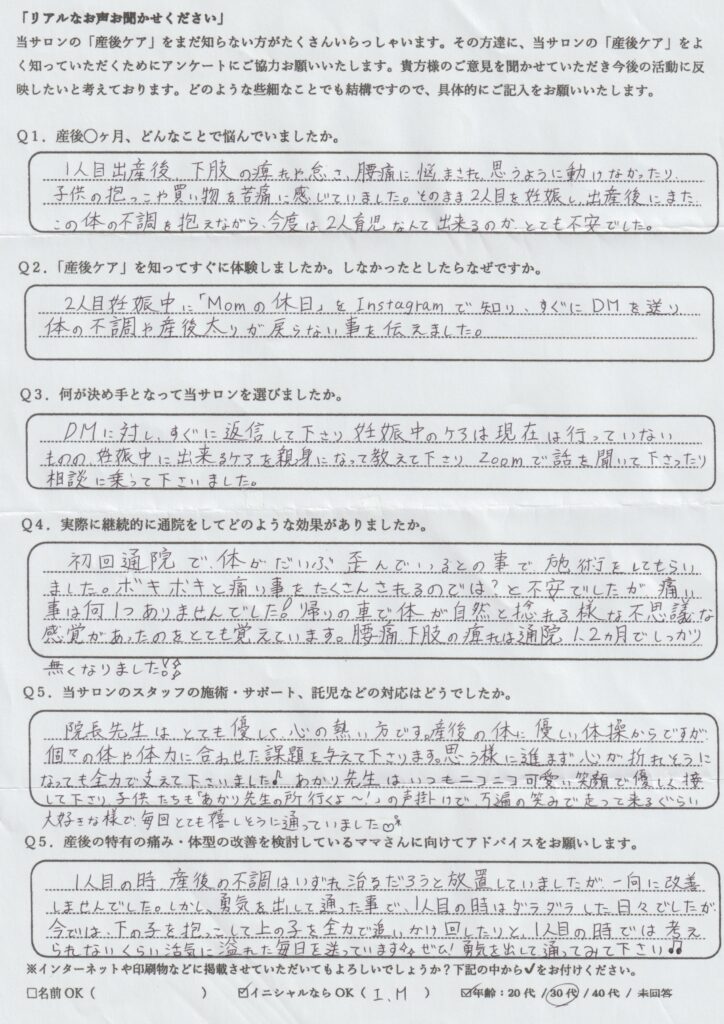 「リアルなお声お聞かせください」
当サロンの「産後ケア」をまだ知らない方がたくさんいらっしゃいます。その方達に、当サロンの「産後ケア」をよ
く知っていただくためにアンケートにご協力お願いいたします。貴方様のご意見を聞かせていただき今後の活動に反
映したいと考えております。どのような些細なことでも結構ですので、具体的にご記入をお願いいたします。
Q1．産後〇ヶ月、どんなことで悩んでいましたか。
1人目出産後、下肢の痺れや怠さ、腰痛に悩まされ思うように動けなかったり
子供の抱っこや買い物を苦痛に感じていました。そのまま2人目を妊娠し、出産後にまた
この体の不調を抱えながら、今度は2人育児なんて出来るのか、とても不安でした。
Q2．「産後ケア」を知ってすぐに体験しましたか。しなかったとしたらなぜですか。
2人目妊娠中に「Momの休日」をInstagramで知り、すぐにDMを送り
体の不調や産後太りが戻らない事を伝えました。
Q3．何が決め手となって当サロンを選びましたか。
DMに対し、すぐに返信して下さり妊娠中のケアは現在は行っていない
ものの、妊娠中に出来るケアを親身になって教えて下さり、Zoomで話を聞いて下さったり
相談に乗って下さいました。
Q4．実際に継続的に通院をしてどのような効果がありましたか。
初回通院で、体がだいぶ歪んでいるとの事で施術をしてもらい
ました。ボキボキと痛い事をたくさんされるのでは？と不安でしたが、痛い
事は何1つありませんでした！帰りの車で体が自然と捻れる様な不思議な
感覚があったのをとても覚えています。腰痛、下肢の痺れは通院1、2ヵ月でしっかり
無くなりました!!
Q5．当サロンのスタッフの施術・サポート、託児などの対応はどうでしたか。
院長先生はとても優しく心の熱い方です。産後の体に優しい体操からですが、
個々の体や体力に合わせた課題を与えて下さります。思う様に進まず心が折れそうに
なっても全力で支えて下さいました♪あかり先生はいつもニコニコ可愛い笑顔で優しく接
して下さり、子供たちも「あかり先生の所行くよ〜！」の声掛けで、万遍の笑みで走って来るぐらい
大好きな様で、毎回とても嬉しそうに通っていました♡
Q5．産後の特有の痛み・体型の改善を検討しているママさんに向けてアドバイスをお願いします。
1人目の時、産後の不調はいずれ治るだろうと放置していましたが、一向に改善
しませんでした。しかし、勇気を出して通った事で、1人目の時はダラダラした日々でしたが、
今では、下の子を抱っこして上の子を全力で追いかけ回したりと、1人目の時では考え
られないくらい活気に溢れた毎日を送っています。ぜひ！勇気を出して通ってみて下さい♫
※インターネットや印刷物などに掲載させていただいてもよろしいでしょうか？下記の中から✔をお付けください。
□名前OK（　　　）　☑イニシャルならOK（I．M）　☑年齢：20代 / 30代 / 40代 / 未回答